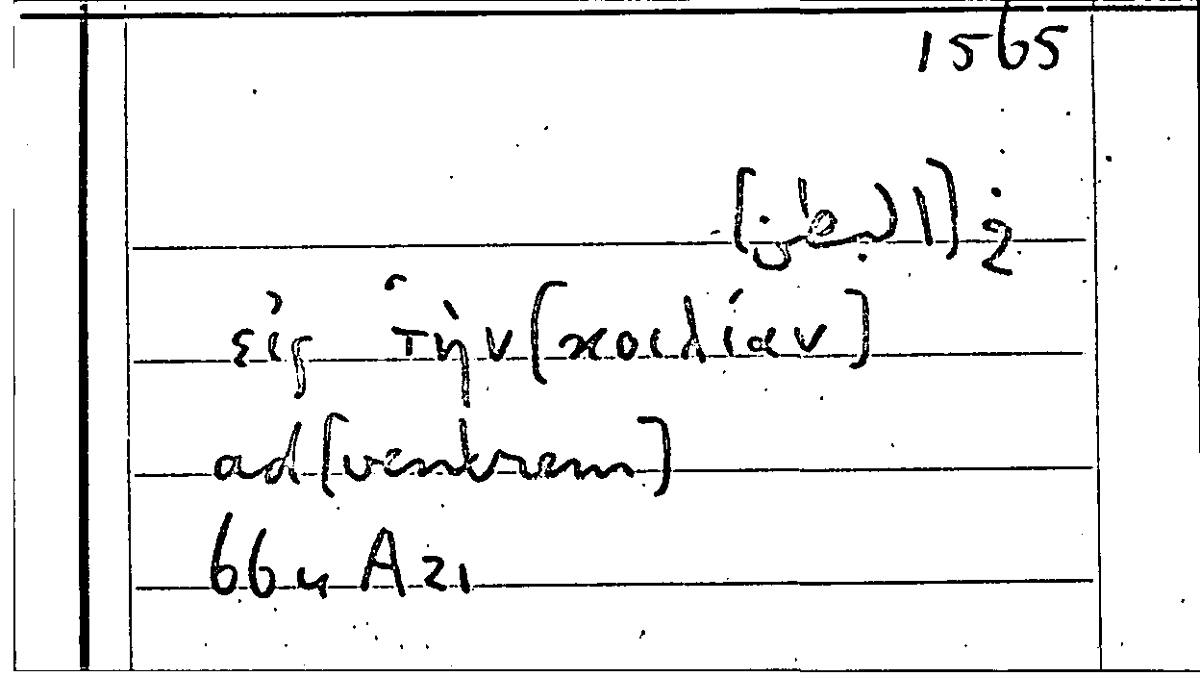 1565
في [البطن]
εἰς τὴν [κοιλίαν]
ad [ventrem]
664 A 21